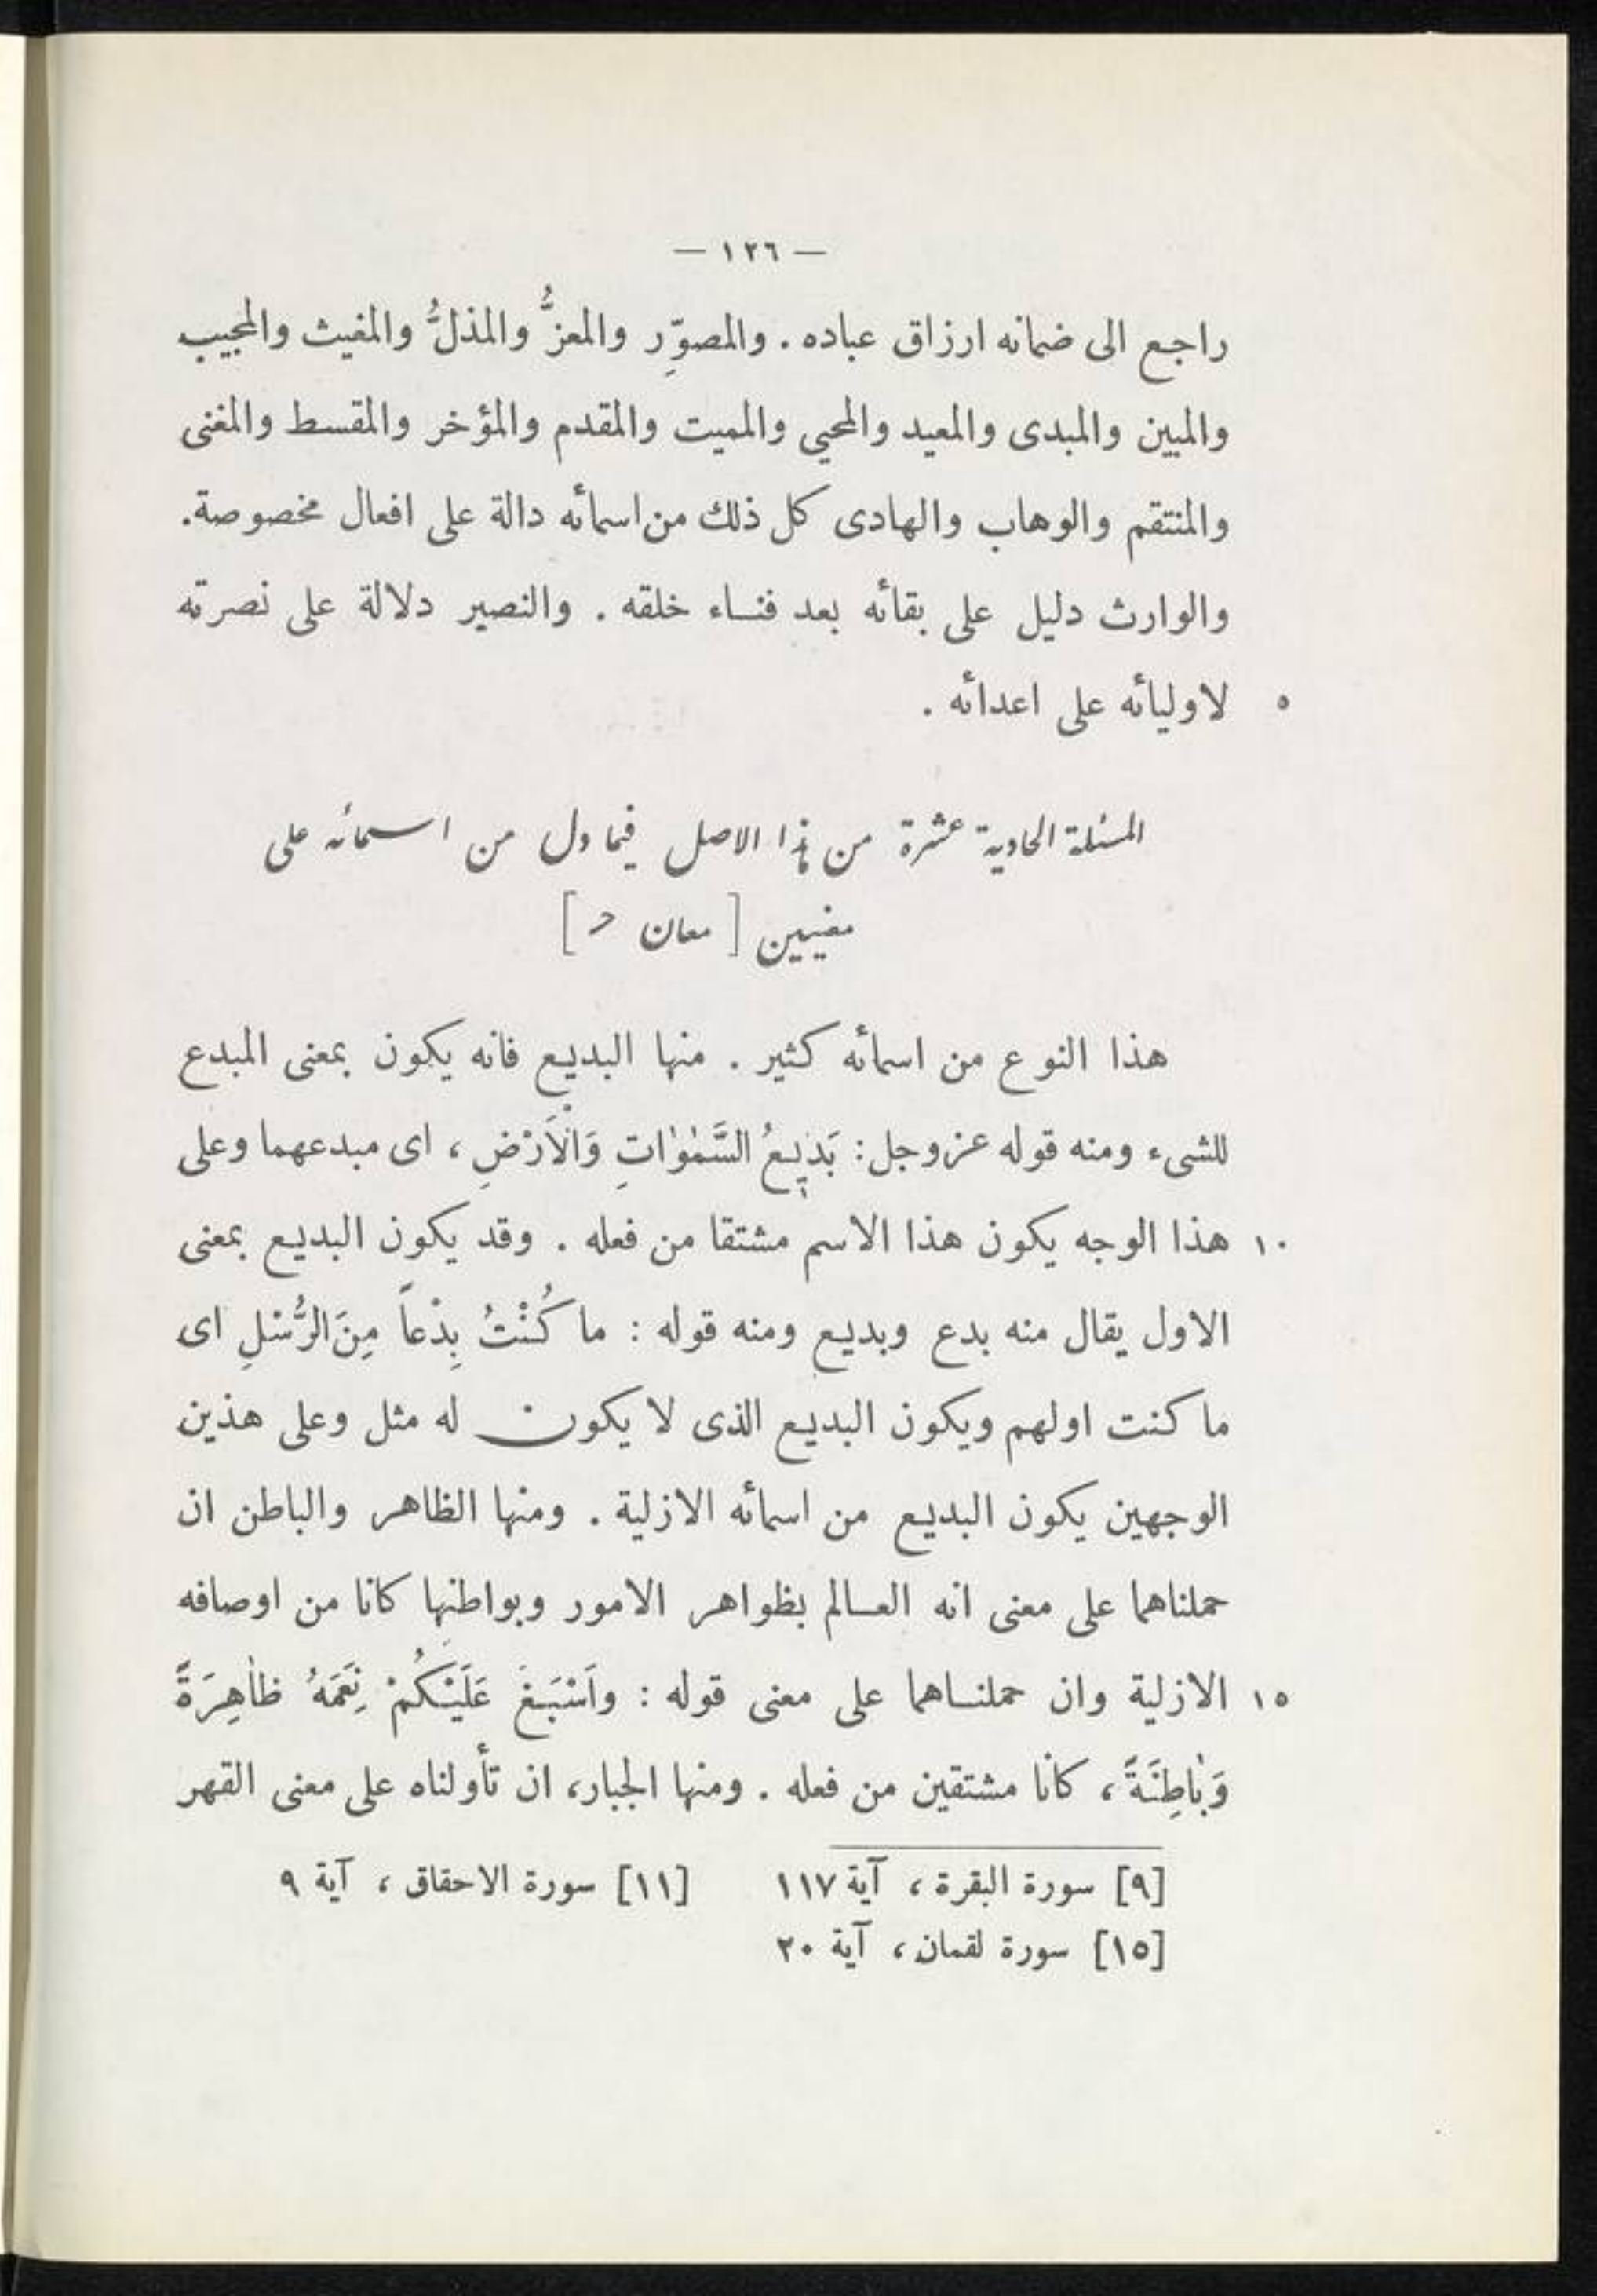 — ١٢٦ —
راجع الى ضمانه ارزاق عباده . والمصوِّر والمعزُّ والمذلُّ والمغيث والمجيب
والمبين والمبدى والمعيد والمحيي والمميت والمقدم والمؤخر والمقسط والمغنى
والمنتقم والوهاب والهادى كل ذلك من اسمائه دالة على افعال مخصوصة.
والوارث دليل على بقائه بعد فناء خلقه . والنصير دلالة على نصرته
٥ لاوليائه على اعدائه .
المسئلة الحادية عشرة من هذا الاصل فيما دل من اسمائه على
معنيين [ معان > ]
هذا النوع من اسمائه كثير . منها البديع فانه يكون بمعنى المبدع
للشىء ومنه قوله عز وجل : بَدٖيعُ السَّمٰوٰاتِ وَالْاَرْضِ ، اى مبدعهما وعلى
١٠ هذا الوجه يكون هذا الاسم مشتقا من فعله . وقد يكون البديع بمعنى
الاول يقال منه بدع وبديع ومنه قوله : ما كُنْتُ بِدْعاً مِنَ الرُّسُلِ اى
ما كنت اولهم ويكون البديع الذى لا يكون له مثل وعلى هذين
الوجهين يكون البديع من اسمائه الازلية . ومنها الظاهر والباطن ان
حملناهما على معنى انه العالم بظواهر الامور وبواطنها كانا من اوصافه
١٥ الازلية وان حملناهما على معنى قوله : واَسْبَغَ عَلَيْكُمْ نِعَمَهُ ظاٰهِرَةً
وَبٰاطِنَةً ، كانا مشتقين من فعله . ومنها الجبار، ان تأولناه على معنى القهر
[٩] سورة البقرة ، آية ١١٧ [١١] سورة الاحقاق ، آية ٩
[١٥] سورة لقمان ، آية ٢٠